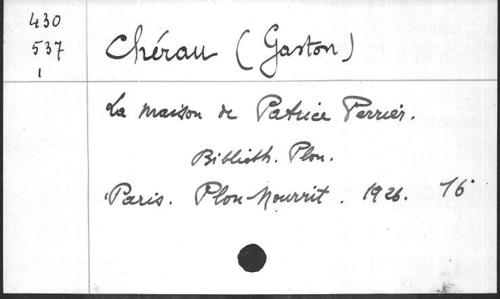 430
537
1
Chérau (Gaston)
La maison de Patrice Perrier.
Biblioth. Plon.
Paris. Plon-Nourrit. 1926. 16°